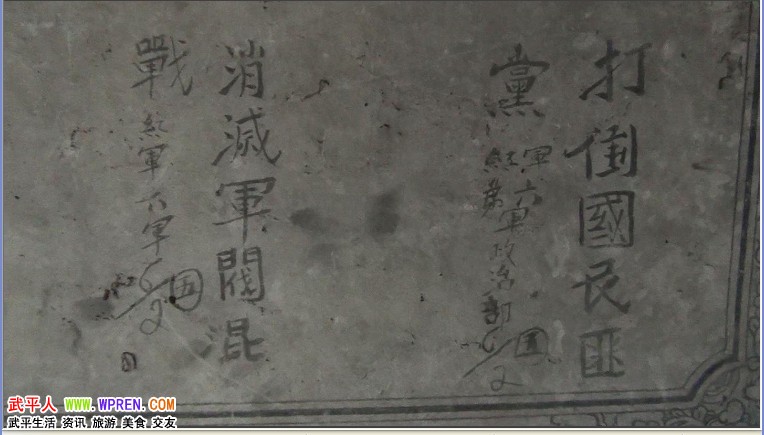 打倒國民匪
黨
紅軍第六軍政治部
消滅軍閥混
戰
紅軍六軍
武平人 WWW.WPREN.COM
武平生活 资讯 旅游 美食 交友